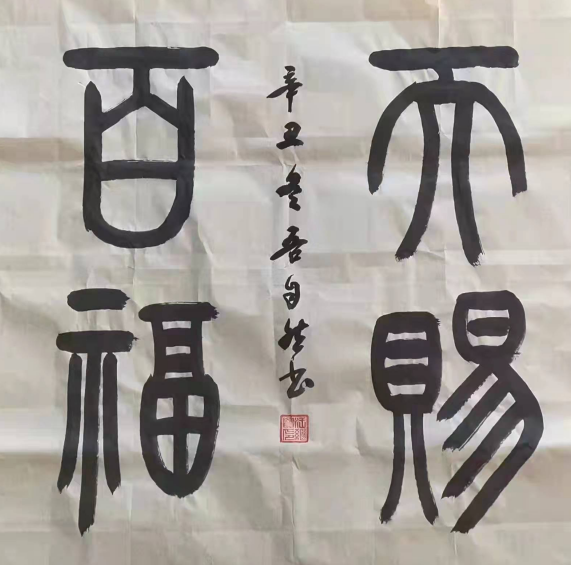 天賜
百福
辛丑冬吾自然书